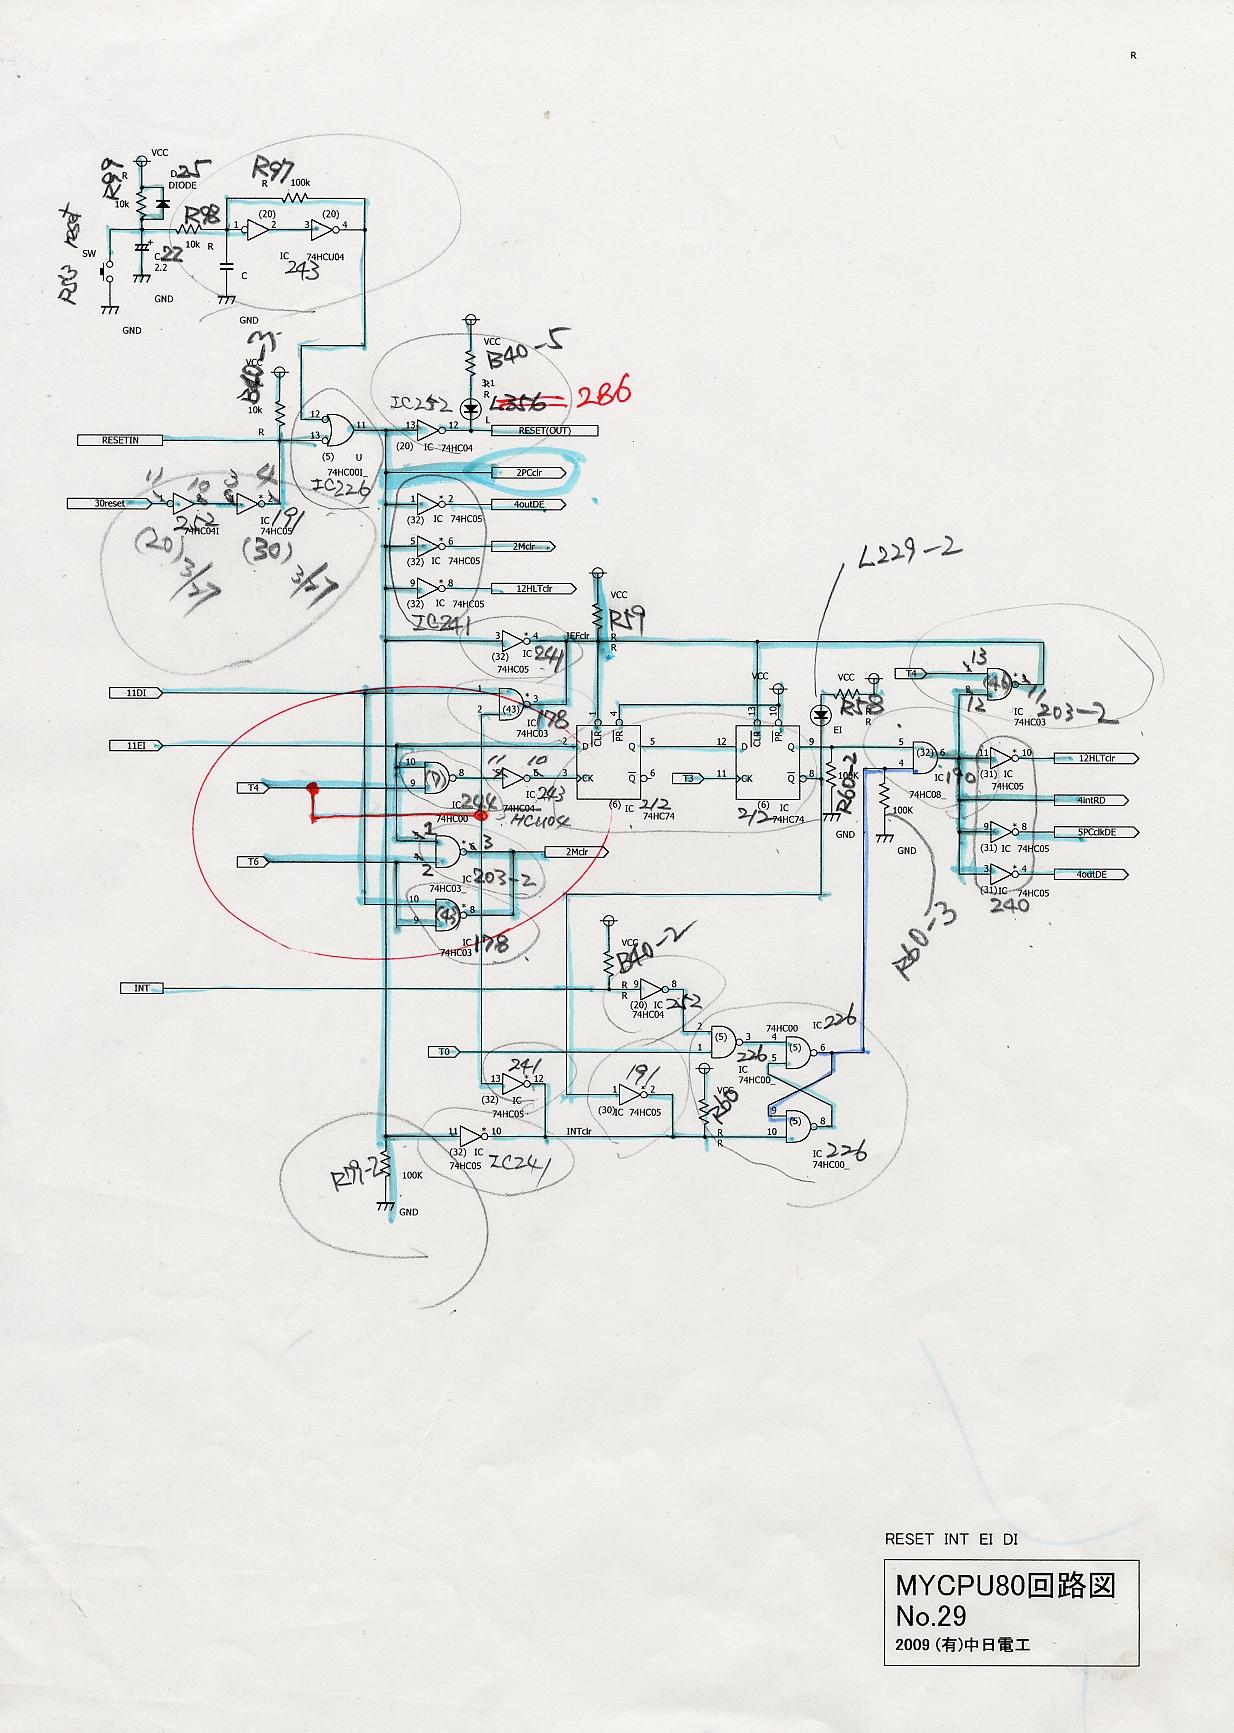 R
VCC
R99
R
10k
D 25
DIODE
R97
R
100k
reset
R98
10k R
1
(20)
2
3
(20)
4
IC
74HCU04
243
SW
C 22
2.2
C
GND
GND
GND
VCC
B40-3
10k
R
VCC
B40-5
R1
R
L356 286
L
IC252
RESETIN
12
13
11
(5)
U
74HC00I_
IC226
13
12
(20) IC 74HC04
RESET(OUT)
2PCclr
30reset
11
10
3
4
252
74HC04I
IC 191
74HC05
(20) 3/27
(30) 3/27
1
2
(32) IC 74HC05
4outDE
5
6
(32) IC 74HC05
2Mclr
9
8
(32) IC 74HC05
12HLTclr
IC241
L229-2
VCC
R59
R
R
3
4
IEFclr
(32) IC 241
74HC05
11DI
1
2
3
(43)
IC 178
74HC03
T4
13
12
(46)
11
IC 203-2
74HC03
VCC
VCC
R58
R
R
EI
11EI
2
D
CLR
1
PR
4
Q
5
CK
3
Q
6
(6) IC 212
74HC74
12
D
CLR
13
PR
10
Q
9
T3
11
CK
Q
8
212 (6) IC
74HC74
100K
R60-2
GND
5
4
6
(32)
IC 190
74HC08_
100K
GND
R60-3
11
10
(31) IC 74HC05
12HLTclr
4intRD
9
(31) IC 74HC05
5PCclkDE
3
4
(31) IC 74HC05
4outDE
240
T4
10
9
8
IC 244
74HC00
11
10
IC 243
74HC04
HCU04
T6
1
2
3
IC 203-2
74HC03_
2Mclr
10
9
8
(43)
IC 178
74HC03
INT
VCC
B40-2
R
R
9
8
(20) IC 252
74HC04
T0
2
1
3
(5)
226
IC
74HC00_
74HC00
IC 226
4
5
6
(5)
9
10
8
(5)
IC 226
74HC00_
241
13
12
(32) IC
74HC05
191
1
2
(30) IC 74HC05
VCC
R60
R
R
11
10
(32) IC
74HC05
IC241
INTclr
R99-2
100K
GND
RESET INT EI DI
MYCPU80回路図
No.29
2009 (有)中日電工